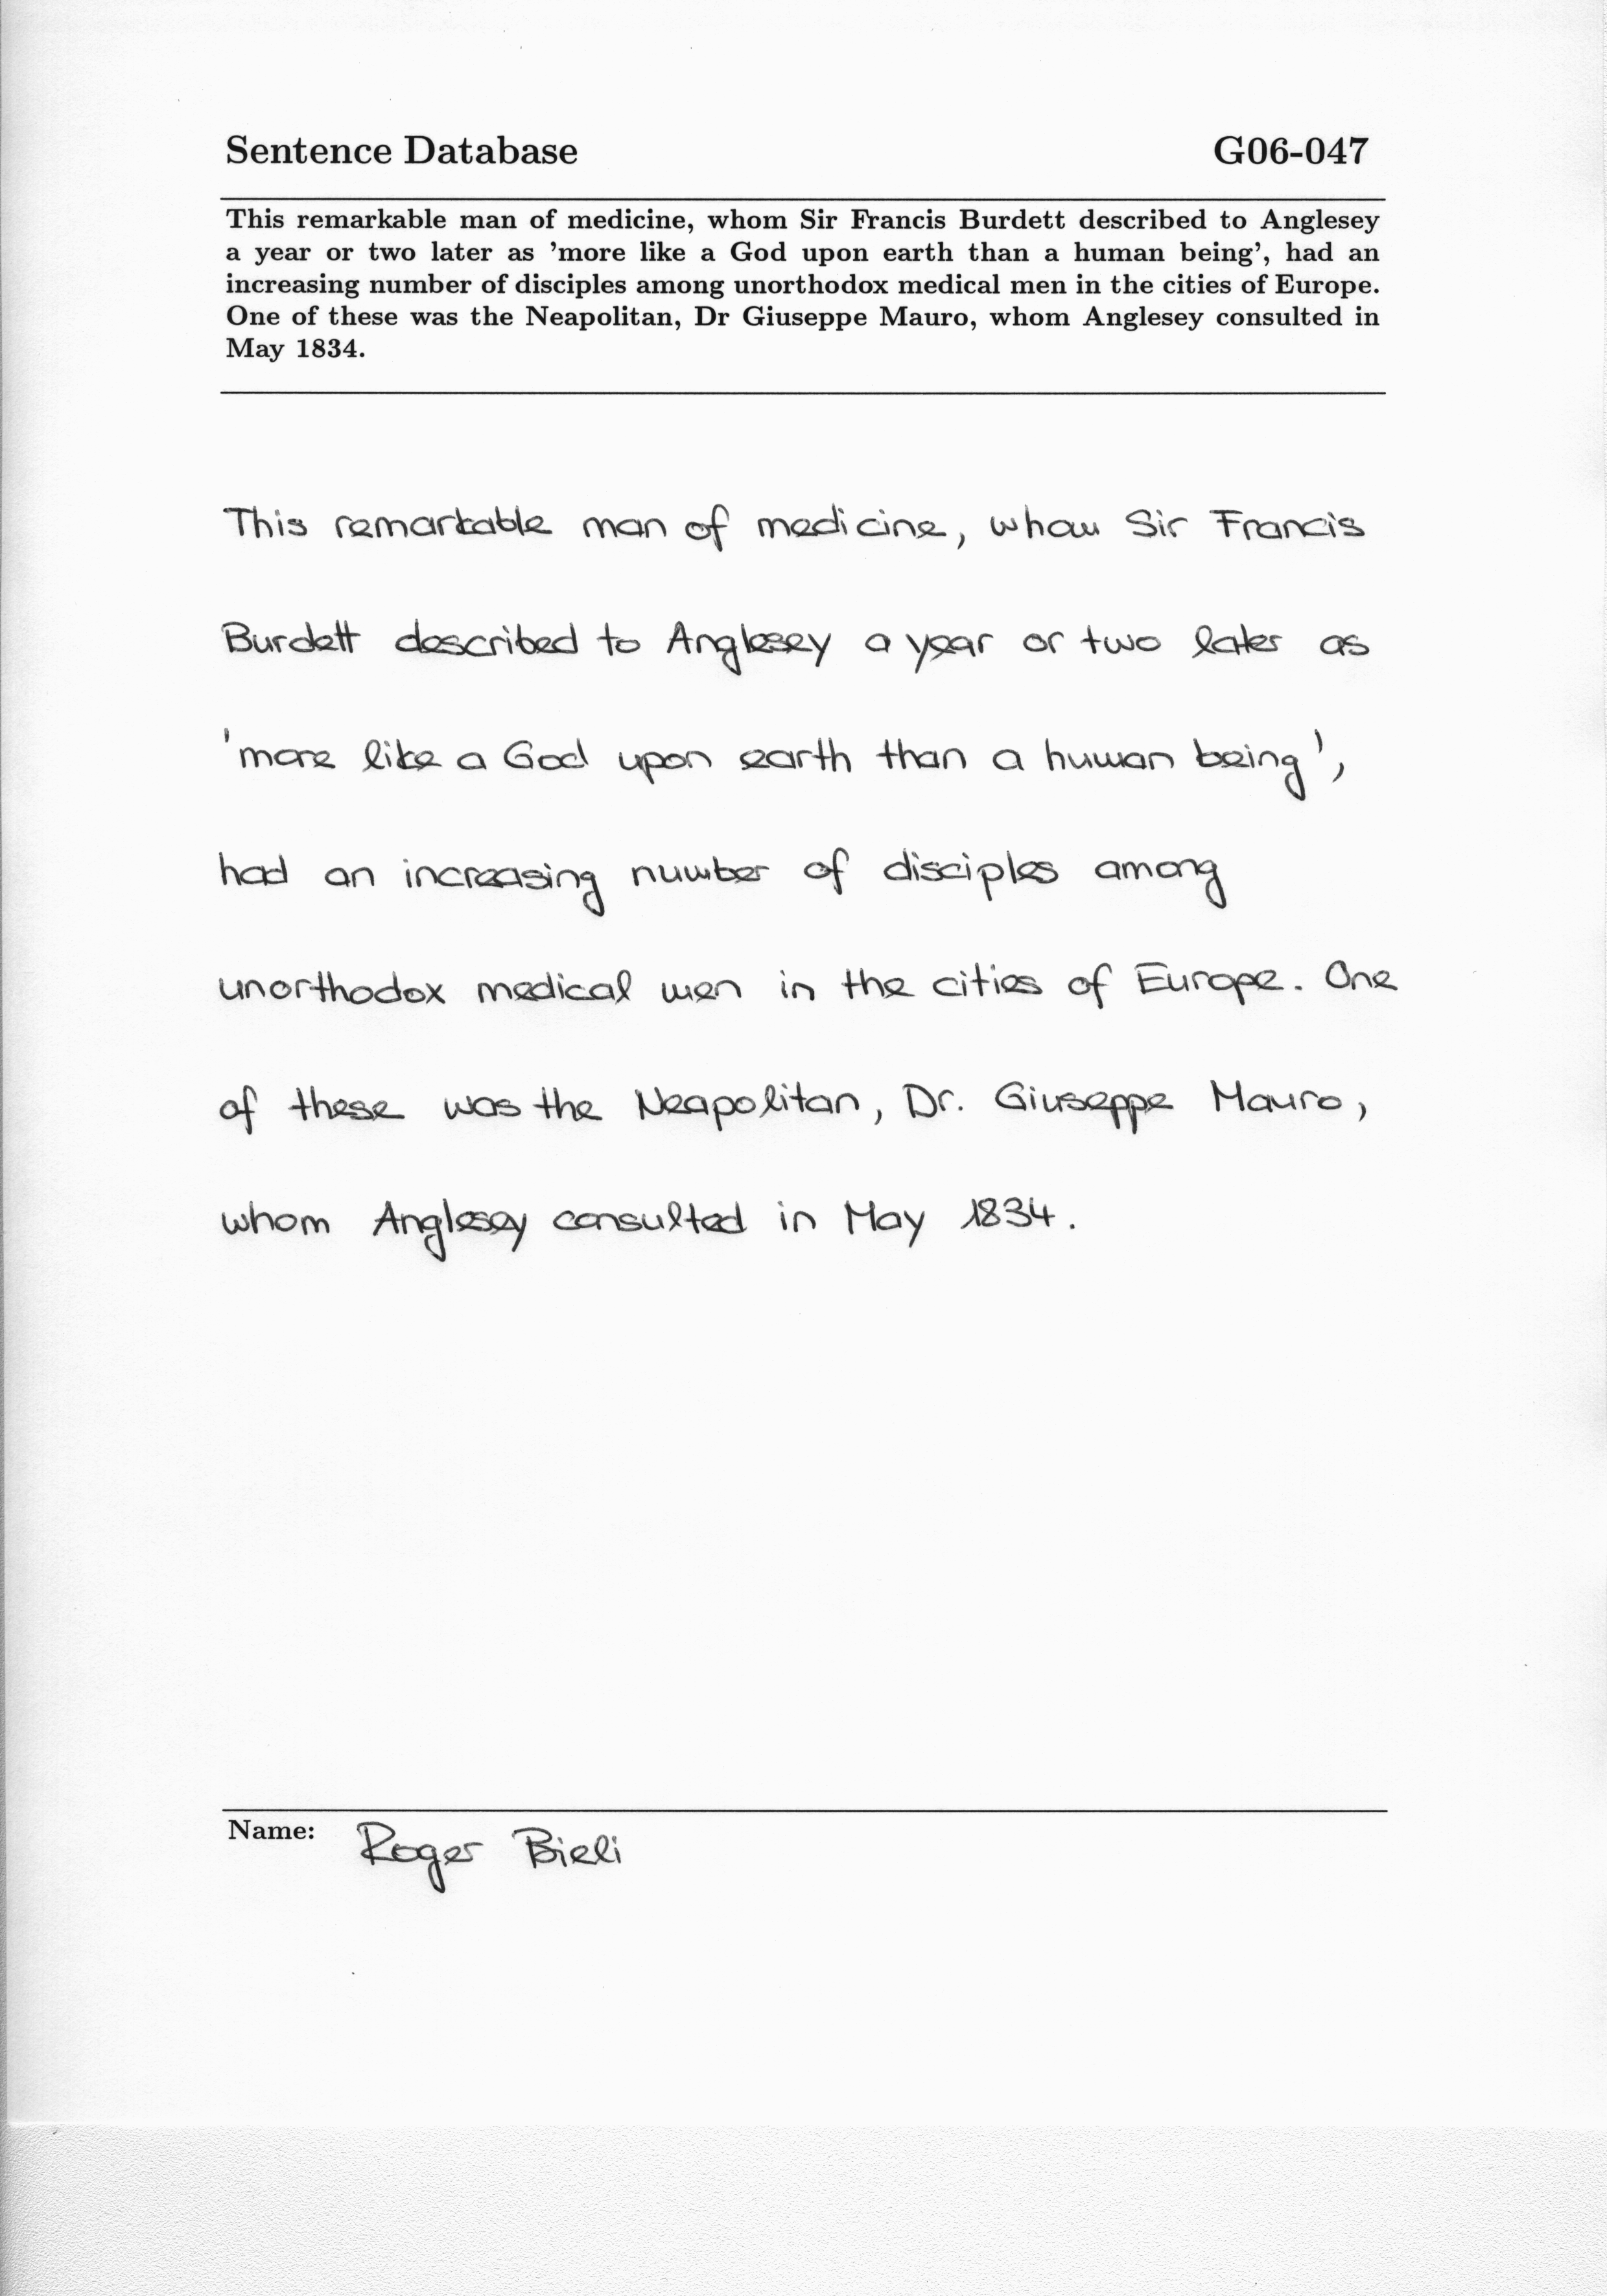 Sentence Database G06-047
This remarkable man of medicine, whom Sir Francis Burdett described to Anglesey
a year or two later as ’more like a God upon earth than a human being’, had an
increasing number of disciples among unorthodox medical men in the cities of Europe.
One of these was the Neapolitan, Dr Giuseppe Mauro, whom Anglesey consulted in
May 1834.
This remarkable man of medicine, whom Sir Francis
Burdett described to Anglesey a year or two later as
'more like a God upon earth than a human being',
had an increasing number of disciples among
unorthodox medical men in the cities of Europe. One
of these was the Neapolitan, Dr. Giuseppe Mauro,
whom Anglesey consulted in May 1834.
Name: Roger Bieli